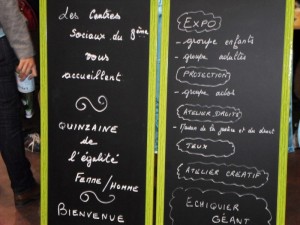 Les Centres
Sociaux du 8ème
vous
accueillent
QUINZAINE
de
l'égalité
FEMME/HOMME
BIENVENUE
EXPO
- groupe enfants
- groupe adultes
PROJECTION
- groupe ados
ATELIER DROITS
- Maison de la justice et du droit
JEUX
ATELIER CREATIF
ECHIQUIER
GÉANT